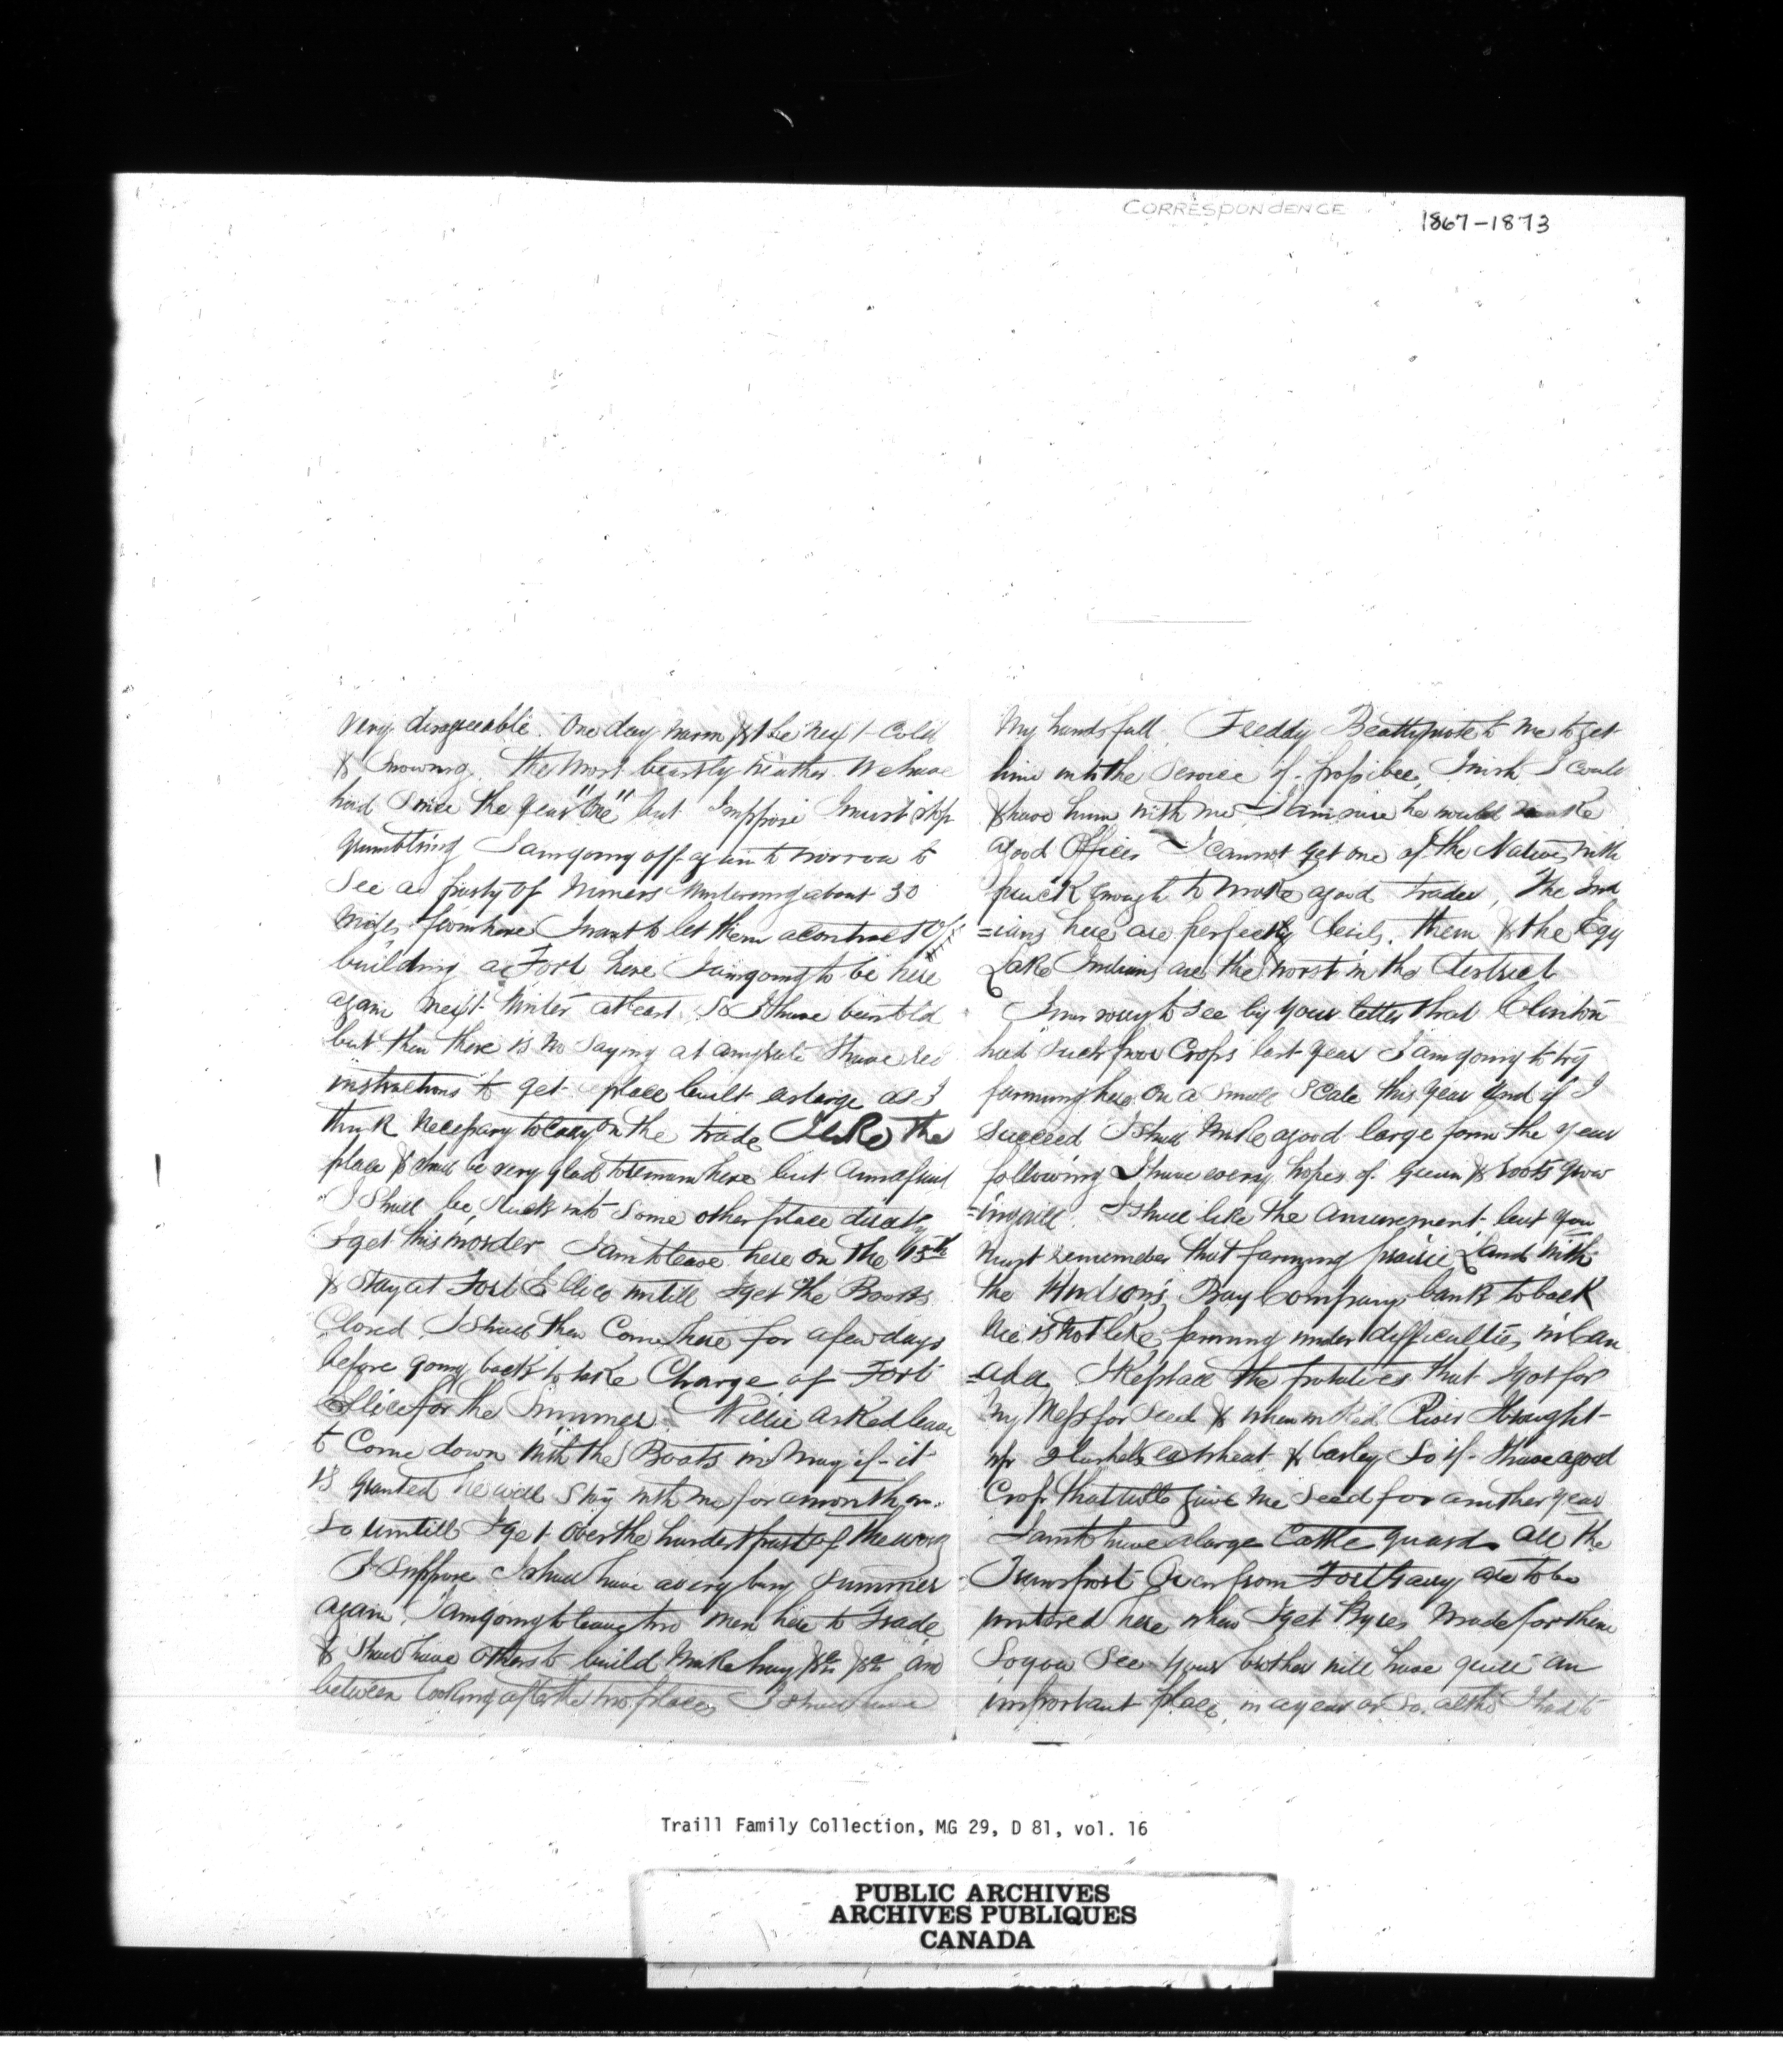 CORRESPONDENCE 1867-1873
very disagreeable. One day warm & the next cold
& snowing. The most beastly weather We have
had since the year "One" but I suppose I must stop
grumbling I am going off again to morrow to
See a party of Miners Wintering about 30
Miles from here I want to let them a contract of
building a Fort here I am going to be here
again next Winter at least So I have been told
but then there is no saying at any rate I have rec
instructions to get a place built as large as I
think necessary to carry on the trade I like the
place & shall be very glad to remain here but am afraid
I shall be stuck into some other place directly
I get this in order I am to leave here on the 15th
& stay at Fort Ellice untill I get the Boats
Closed I shall then Come here for a few days
before going back to take Charge of Fort
Ellice for the Summer. Willie asked leave
to Come down with the Boats in May if it
is granted he will stay with me for a month or
so untill I get over the hardest part of the work
I suppose I shall have a very busy summer
again. I am going to leave two men here to trade
& shall have others to build Make hay &c &c and
between looking after the two places I shall have
My hands full. Freddy Beatty wrote to me to get
him into the service if possible, I wish I could
& have him with me I am sure he would make
a good Officer I cannot get one of the Natives with
pluck enough to make a good trader, The Ind
=ians here are perfectly Devils. them & the Egg
Lake Indians are the worst in the District
I was sorry to see by your letter that Clinton
had such poor Crops last year I am going to try
farming here on a small scale this year and if I
succeed I shall make a good large farm the year
following I have every hopes of grain & roots grow
=ing well. I shall like the amusement but you
must remember that farming prairie Land with
the Hudson's Bay Company's bank to back
Me is not like farming under difficulties in Can
=ada I kept all the potatoes that I got for
My Mess for seed & when in Red River I brought
up 2 bushels ea wheat & barley So if I have a good
Crop that will give me seed for another year
I am to have a large Cattle guard all the
Transport Oxen from Fort Garry are to be
wintered here when I get Byres made for them
So you see your brother will have quite an
important place, in a year or so. altho I had to
Traill Family Collection, MG 29, D 81, vol. 16
PUBLIC ARCHIVES
ARCHIVES PUBLIQUES
CANADA